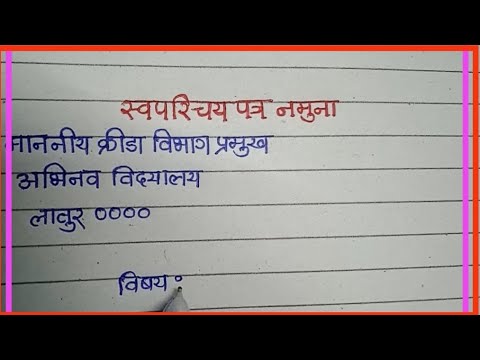 स्वपरिचय पत्र नमुना
माननीय क्रीडा विभाग प्रमुख
अभिनव विद्यालय
लातुर ००००
विषय :